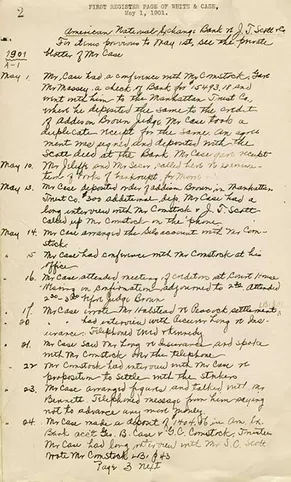 2
FIRST REGISTER PAGE OF WHITE & CASE,
May 1, 1901.
American National Exchange Bank v J. T. Scott & Co
For items previous to May 1st, see the private
blotter of Mr Case
1901
May 1. Mr Case had a conference with Mr Comstock, Gave
Mr Massey a check of Bank for 15493.11 and
went with him to the Manhattan Trust Co.
where he deposited the same to the credit
of Addison Brown Judge. Mr Case took a
duplicate receipt for the same. An agree
ment was signed and deposited with the
Scott deed at the Bank. Mr Case receipt
May 10. Mr and Mr called here to
tion of of bankrupt for
May 13. Mr Case deposited order of Addison Brown, in Manhattan
Trust Co. 300 additional dep. Mr Case had a
long interview with Mr Comstock & J. T. Scott
called up Mr Comstock on the phone
May 14. Mr Case arranged the account with Mr Com-
stock
" 15 Mr Case had conference with Mr Comstock at his
office
" 16. Mr Case attended meeting of creditors at Court House
on confirmation adjourned to attended
before Judge Brown
" 17. Mr Case wrote Mr Halstead re Peacock settlement
" 20 " had interview with Receiver Long re In-
surance. Telephoned Kennedy
" 21. Mr Case saw Mr Long re Insurance and spoke
with Mr Comstock over the telephone
" 22 Mr Comstock had interview with Mr Case re
proposition to settle with the
" 23. Mr Case arranged figures and talked with Mr
Bennett. Telephoned message from him saying
not to advance any more money
" 24. Mr Case make a deposit of in Am. Ex
Bank acct Geo. B. Case & G. C. Comstock, Trustee
Mr Case had long interview with Mr J. C. Scott
Wrote Mr Comstock LB1 p 43
Page 3 next